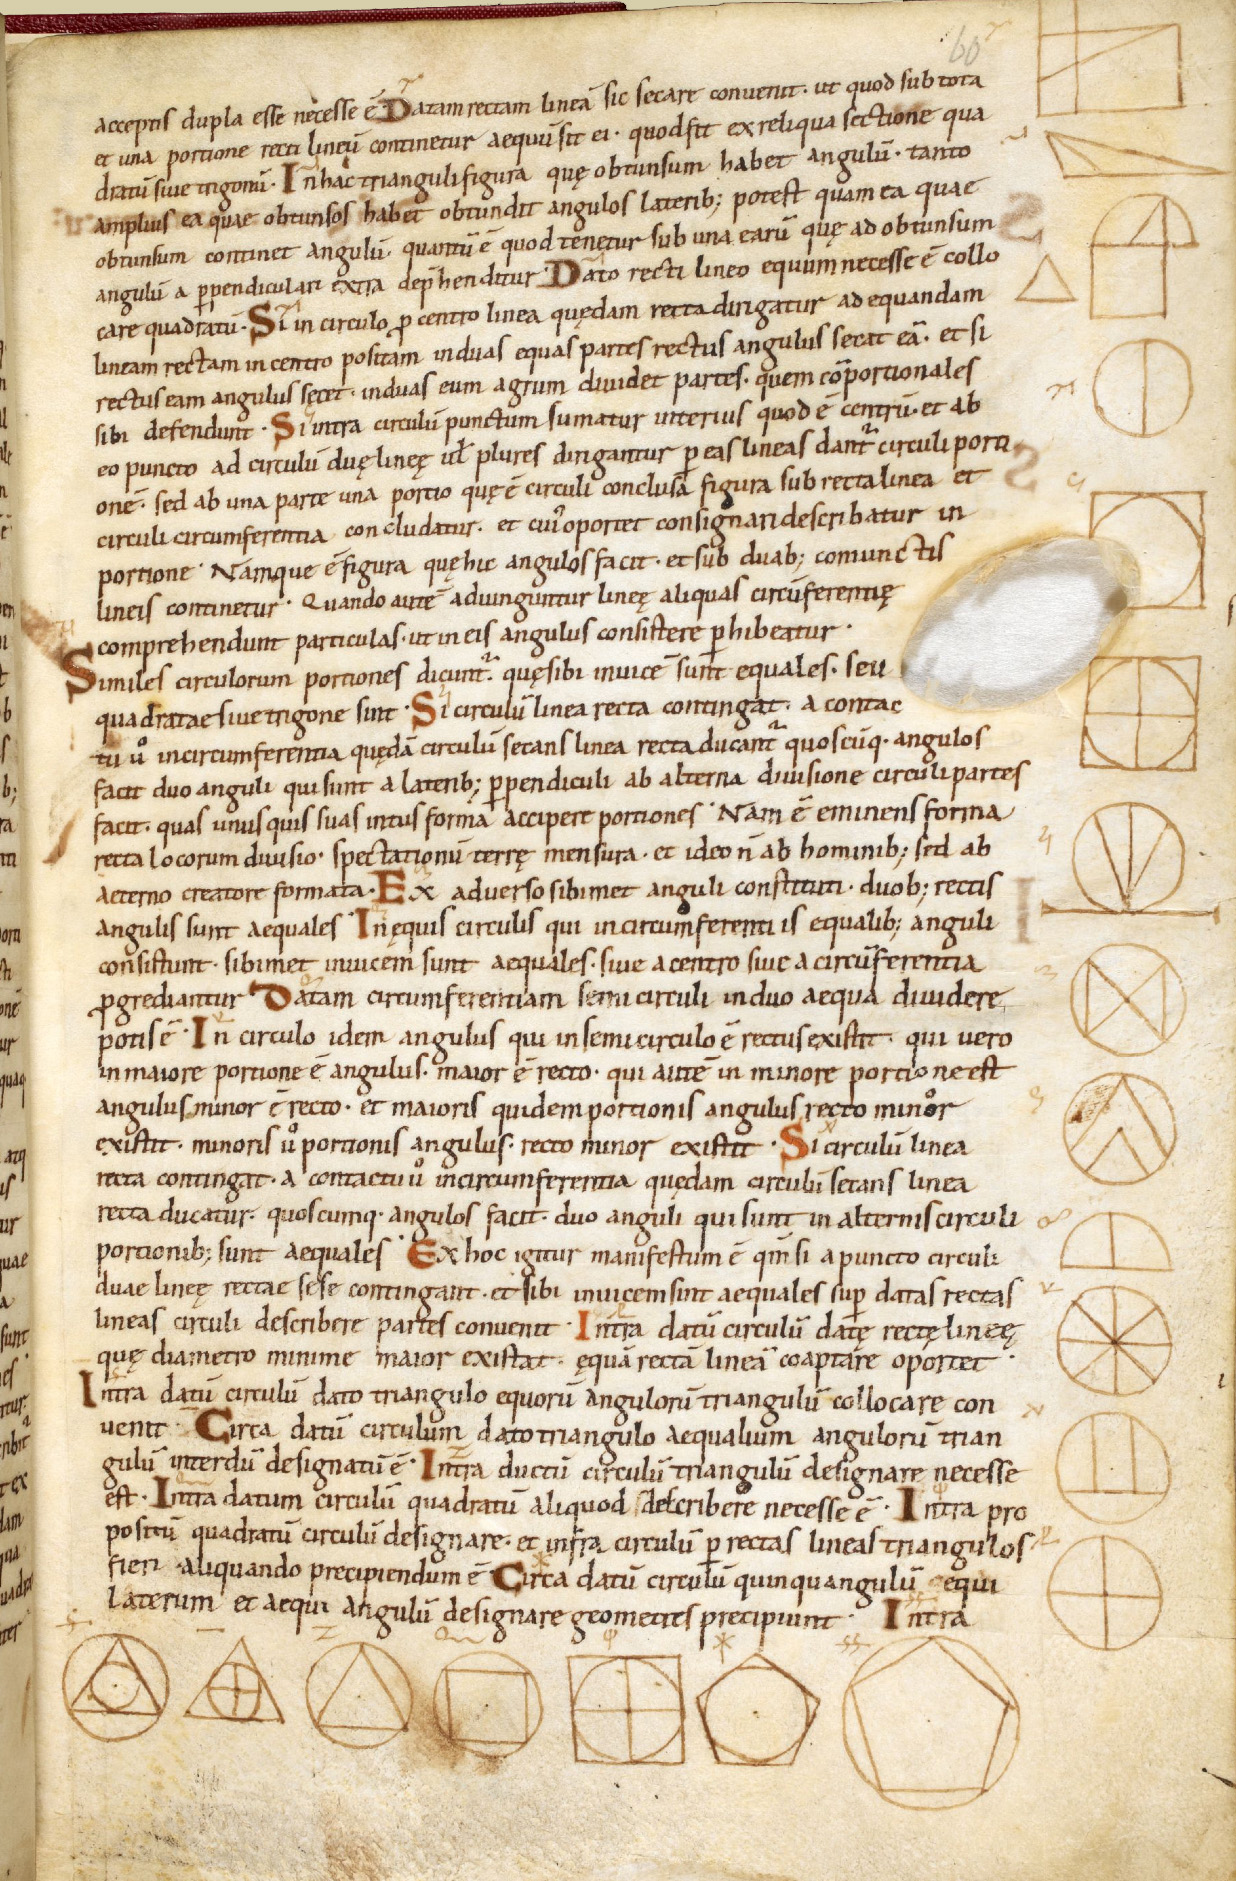 60
acceptis dupla esse necesse ē Datam rectam lineā sic secare conuenit· ut quod sub tota
et una portione recti lineū continetur aequū sit ei· quod fit ex reliqua sectione qua
dratū siue trigonū· In hac trianguli figura quę obtunsum habet angulū· tanto
amplius ea quae obtunsos habet obtundit angulos laterib; potest quam ea quae
obtunsum continet angulū· quantū ē quod tenetur sub una earū quę ad obtunsum
angulū a ꝑpendiculari extra dep̄henditur· Dato recti lineo equum necesse ē collo
care quadratū· Si in circulo ꝓ centro linea quędam recta dirigatur ad equandam
lineam rectam in centro positam in duas equas partes rectus angulus secat eā· et si
rectus eam angulus secet· in duas eum agrum diuidet partes· quem cōportionales
sibi defendunt· Si intra circulū punctum sumatur interius quod ē centrū· et ab
eo puncto ad circulū duę lineę uł plures dirigantur ꝑ eas lineas dant᷑ circuli porti
onē· sed ab una parte una portio quę ē circuli conclusa figura sub recta linea et
circuli circumferentia concludatur· et cui oportet consignari describatur in
portione· Namque ē figura quę hic angulos facit· et sub duab; coniunctis
lineis continetur· Quando autē adiunguntur lineę aliquas circūferentię
comprehendunt particulas· ut in eis angulus consistere ꝑhibeatur·
Similes circulorum portiones dicunt᷑· quę sibi inuicē sunt equales· seu
quadratae siue trigone sint· Si circulū linea recta contingat· a contac
tu uͦ in circumferentia quędā circulū secans linea recta ducant᷑ quoscūq· angulos
facit duo anguli qui sunt a laterib; ꝑpendiculi ab alterna diuisione circuli partes
facit· quas unus quis suas intus forma accipere portiones· Nam ē eminens forma
recta locorum diuisio· spectationū terrę mensura· et ideo n̄ ab hominib; sed ab
aeterno creatore formata· Ex aduerso sibimet anguli constituti· duob; rectis
angulis sunt aequales· In ęquis circulis qui in circumferentiis equalib; anguli
consistunt· sibimet inuicem sunt aequales· siue a centro siue a circūferentia
ꝓgrediantur Datam circumferentiam semicirculi in duo aequa diuidere
potis ē· In circulo idem angulus qui in semicirculo ē rectus existit· qui uero
in maiore portione ē angulus· maior ē recto· qui autē in minore portione est
angulus minor ē recto· et maioris quidem portionis angulus recto minor
existit· minoris uͦ portionis angulus· recto minor existit· Si circulū linea
recta contingat· a contactu uͦ in circumferentia quędam circulū secans linea
recta ducatur· quoscumq· angulos facit· duo anguli qui sunt in alternis circuli
portionib; sunt aequales· Ex hoc igitur manifestum ē qm̄ si a puncto circuli
duae lineę rectae sese contingant· et sibi inuicem sint aequales suꝑ datas rectas
lineas circuli describere partes conuenit· Intra datū circulū datę rectę lineę
quę diametro minime maior existat· ęquā rectā lineā coaptare oportet·
Intra datū circulū dato triangulo equorū angulorū triangulū collocare con
uenit· Circa datū circulum dato triangulo aequalium angulorū trian
gulū interdū designatū ē· Intra ductū circulū triangulū designare necesse
est· Intra datum circulū quadratū aliquod describere necesse ē· Intra pro
positū quadratū circulū designare· et infra circulū ꝑ rectas lineas triangulos
fieri aliquando precipiendum ē· Circa datū circulū quinquangulū equi
laterum et aequi angulū designare geometres precipiunt· Intra